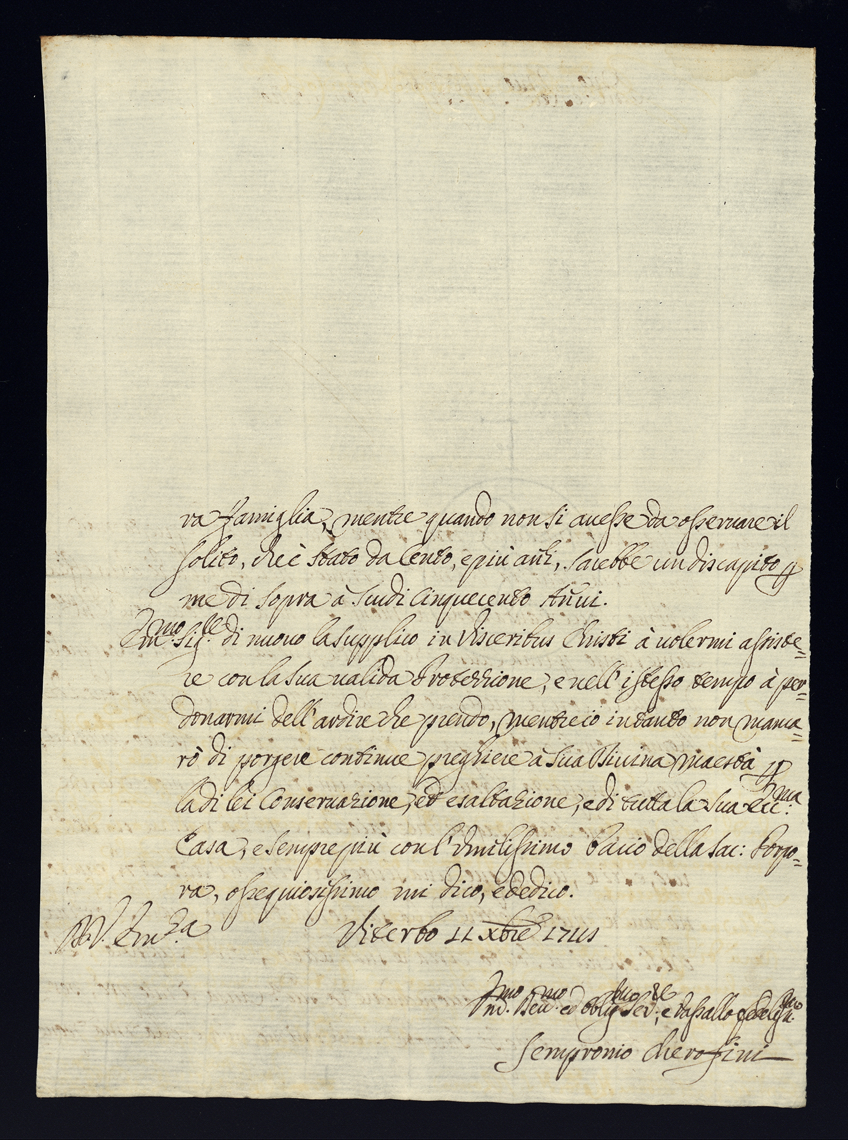 ra famiglia, mentre quando non si avesse da osservare il
solito, che è stato da Cento, e più anni, sarebbe un discapito p
me di sopra à Scudi Cinquecento Annui.
Em.mo Sig.re di nuovo la supplico in visceribus Christi à volermi assiste=
re con la sua valida Protezzione, e nell'istesso tempo à per=
donarmi dell'ardire che prendo, mentre io intanto non manca=
rò di porgere continue preghiere à Sua Divina Maestà p
la di lei Conservazione, ed esaltazione, e di tutta la Sua Ecc.ma
Casa, e sempre più con l'Umilissimo bacio della Sac: Porpo=
ra, ossequiosissimo mi dico, e dedico.
D. V. Em.za
Viterbo 11 Xbre
Um.mo Dev.mo ed obblig.mo Ser.re, e Vassallo fedeliss.mo
Sempronio Cherofini